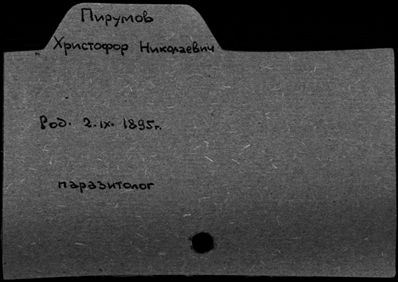 Пирумов
Христофор Николаевич
Род. 2.IX. 1895г.
паразитолог